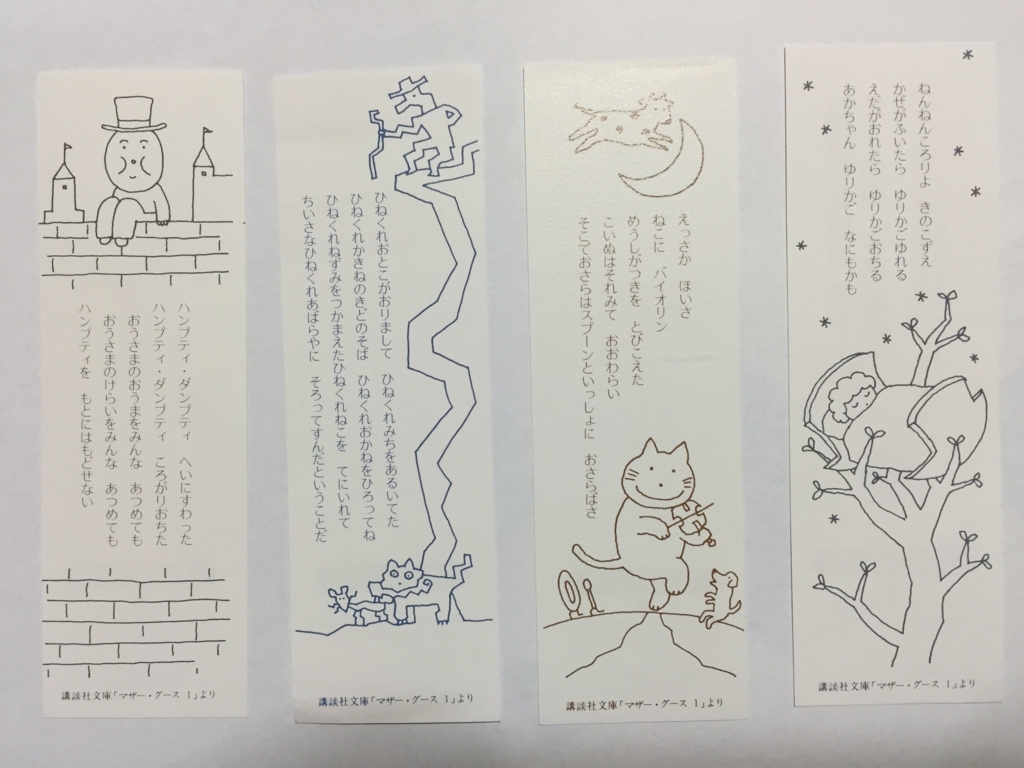 ハンプティ・ダンプティ　へいにすわった
ハンプティ・ダンプティ　ころがりおちた
おうさまのおうまをみんな　あつめても
おうさまのけらいをみんな　あつめても
ハンプティを　もとにはもどせない
講談社文庫「マザー・グース 1」より
ひねくれおとこがおりまして　ひねくれみちをあるいてた
ひねくれかきねのきどのそば　ひねくれおかねをひろってね
ひねくれねずみをつかまえたひねくれねこを　てにいれて
ちいさなひねくれあばらやに　そろってすんだということだ
講談社文庫「マザー・グース 1」より
えっさか　ほいさ
ねこに　バイオリン
めうしがつきを　とびこえた
こいぬはそれみて　おおわらい
そこでおさらはスプーンといっしょに　おさらばさ
講談社文庫「マザー・グース 1」より
ねんねんころりよ　きのこずえ
かぜがふいたら　ゆりかごゆれる
えだがおれたら　ゆりかごおちる
あかちゃん　ゆりかご　なにもかも
講談社文庫「マザー・グース 1」より